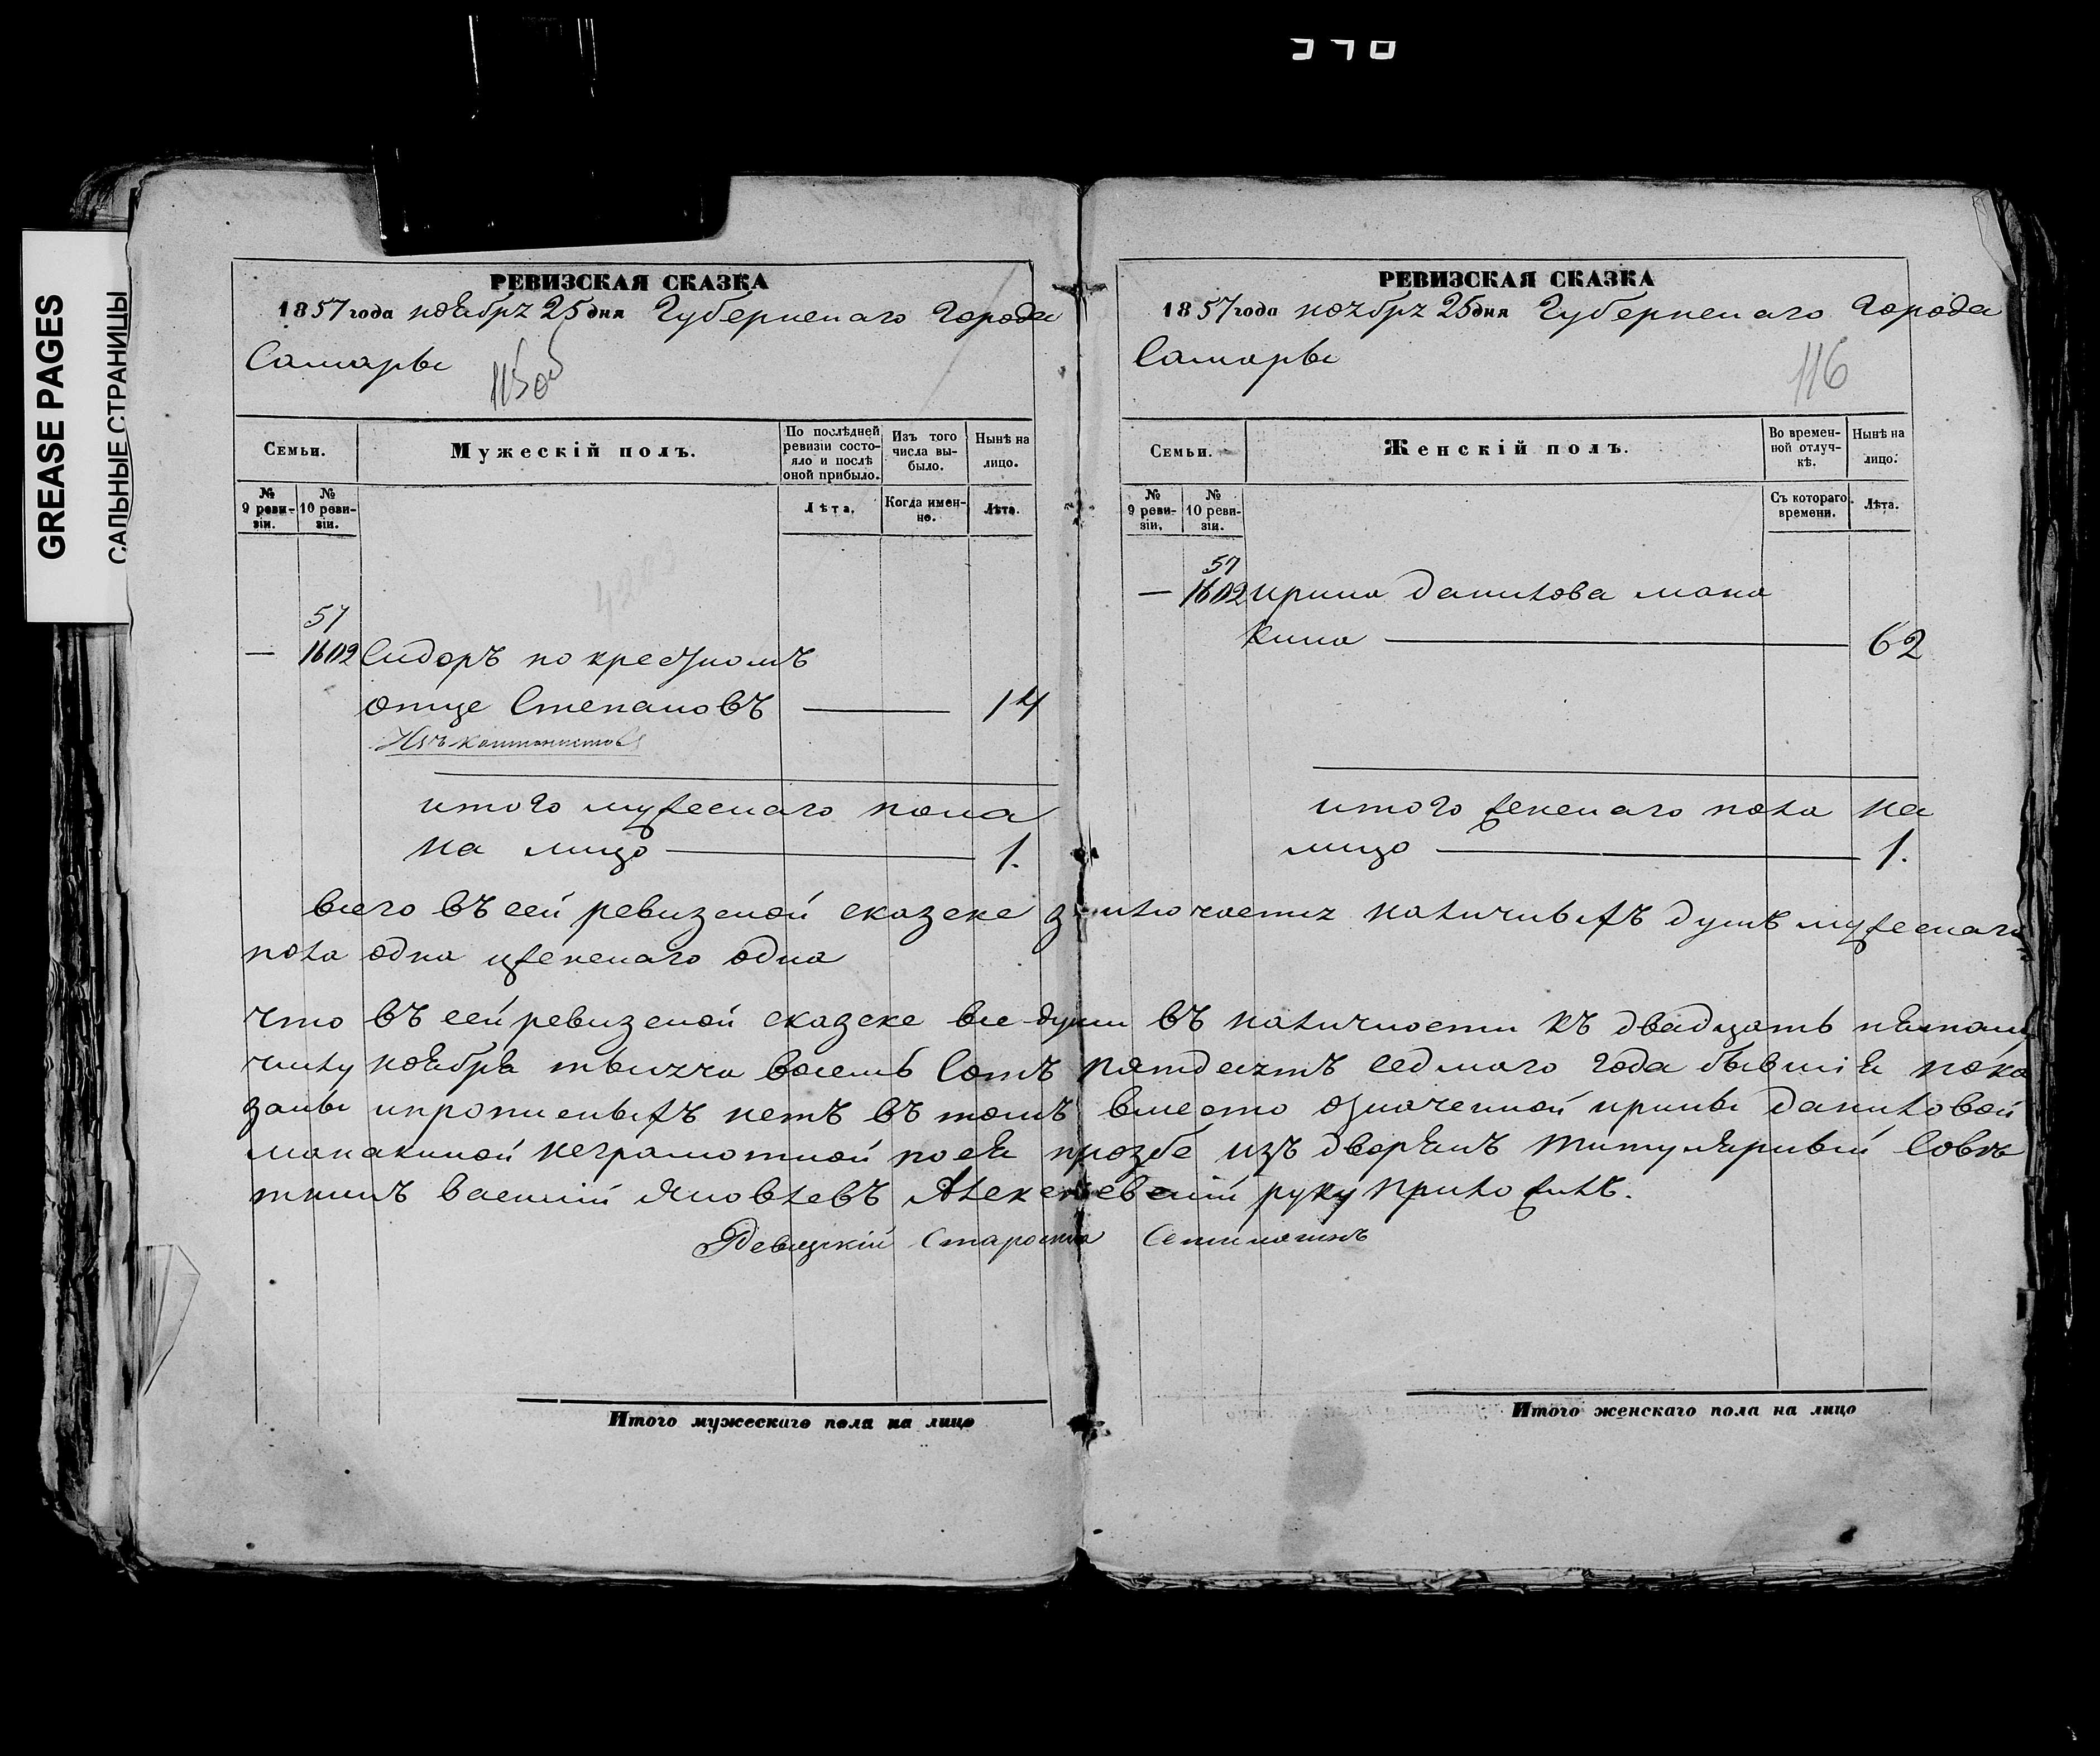 370
GREASE PAGES
САЛЬНЫЕ СТРАНИЦЫ
РЕВИЗСКАЯ СКАЗКА
1857 года ноябрѧ 25 дня Губернскаго Города
Самары
115 об
Семьи.
Мужескій полъ.
По послѣдней ревизіи состояло и послѣ оной прибыло.
Изъ того числа выбыло.
Нынѣ на лицо.
№ 9 ревизіи.
№ 10 ревизіи.
Лѣта.
Когда именно.
Лѣта.
57
— 1602 Сидоръ по крестномъ
отце Степановъ — 14
Изъ кантонистовъ
итого мужескаго пола
на лицо — 1.
РЕВИЗСКАЯ СКАЗКА
1857 года ноябрѧ 25 дня Губернскаго Города
Самары
116
Семьи.
Женскій полъ.
Во временной отлучкѣ.
Нынѣ на лицо.
№ 9 ревизіи.
№ 10 ревизіи.
Съ котораго времени.
Лѣта.
57
— 1602 ирина данилова мана
кина — 62
итого женскаго пола на
лицо — 1.
всего въ сей ревизской сказске заключаетця наличныхъ душъ мужескаго
пола одна иженскаго одна
что въ сей ревизской сказске все души въ наличности къ двадцать пятому
числу ноября тысяча восемь Сотъ пятдесятъ седмаго года бывшія пока
заны ипрописныхъ нетъ въ томъ вместо означенной ирины даниловой
манакиной неграмотной поея прозбе изъ дворянъ титулярный Совѣ
тникъ василій яковлевъ Алексеевский руку приложилъ.
Ревизскій Староста
Итого мужескаго пола на лицо
Итого женскаго пола на лицо